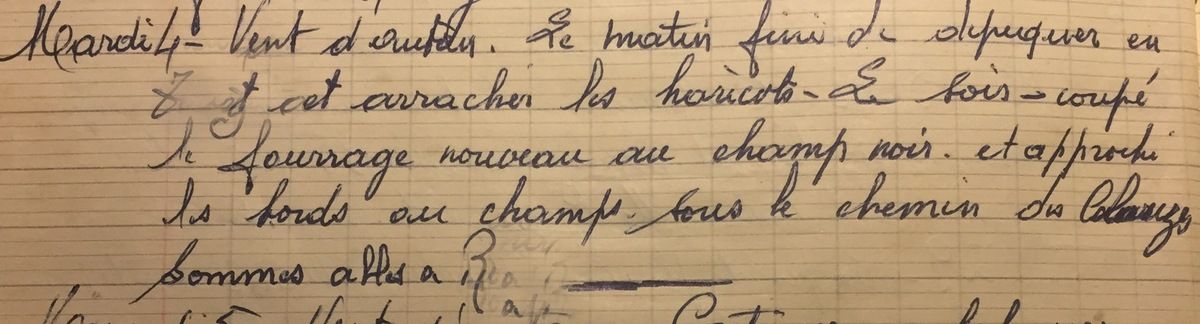 Mardi 4 - Vent d'autan. Le matin fini de dépiquer en
et arracher les haricots - Le soir - coupé
le fourrage nouveau au champ noir. et approché
les bords au champs. sous le chemin des
sommes allés a